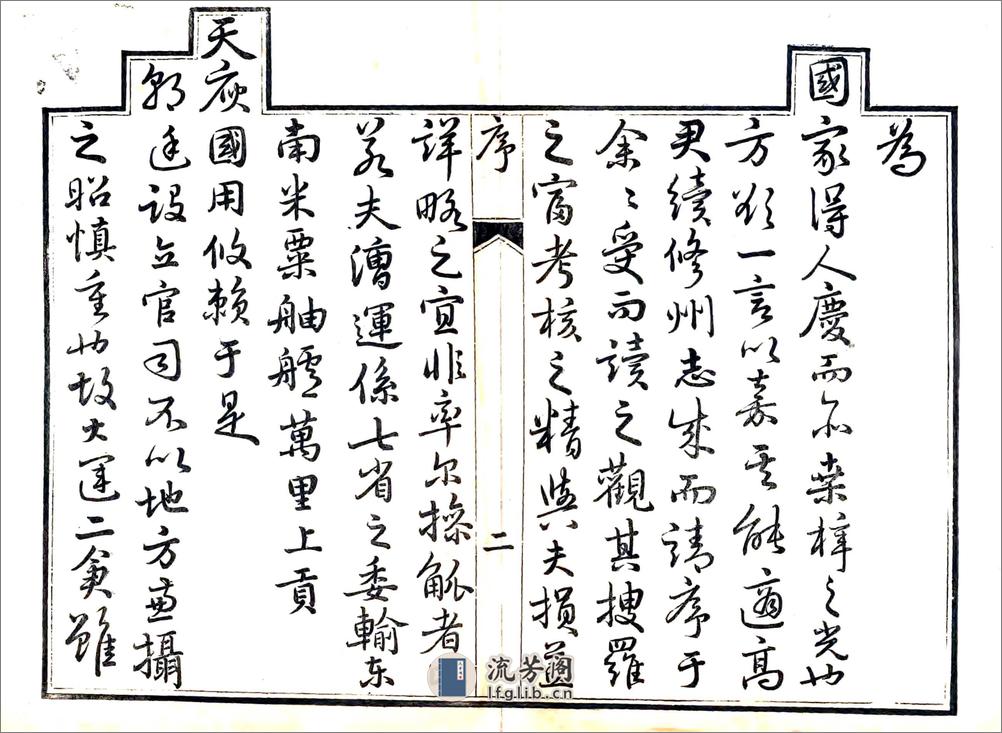 為
國家得人慶而亦桑梓之光也
方欲一言以嘉其能適高
尹續修州志成而請序于
余〻受而讀之觀其搜羅
之富考核之精與夫損益
序
二
詳略之宜非率尔操觚者
若夫漕運係七省之委輸东
南米粟舳艫萬里上貢
天庾國用攸賴于是
朝廷設立官司不以地方兼攝
之昭慎重也故大運二食雖
流芳阁
lfglib.cn